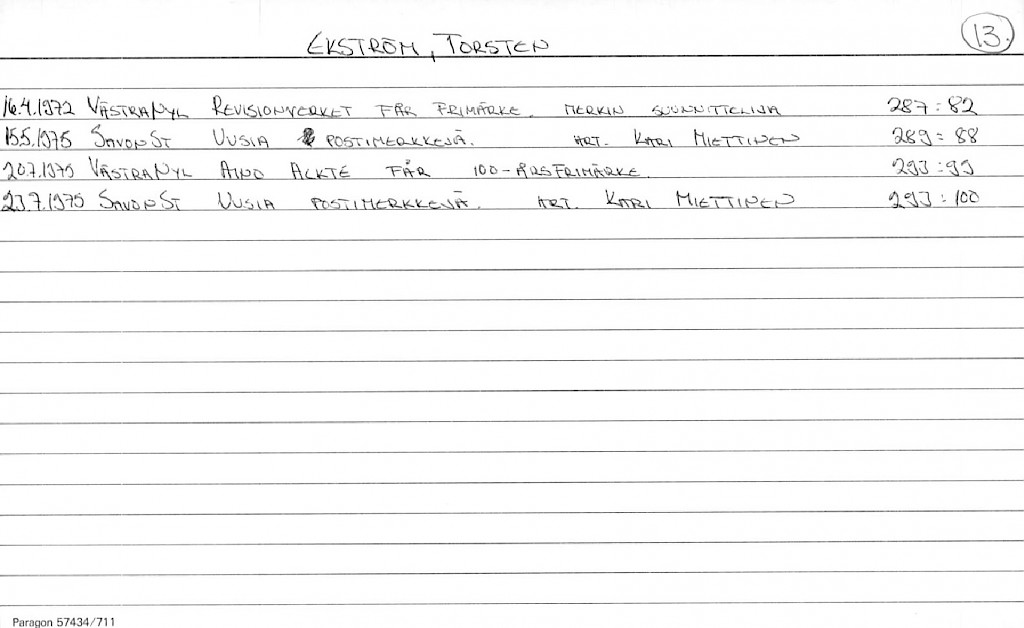 EKSTRÖM, TORSTEN 13.
16.4.1972 VÄSTRANYL REVISIONVERKET FÅR FRIMÄRKE. MERKIN SUUNNITTELIJA 287:82
15.5.1975 SAVONST UUSIA POSTIMERKKEJÄ. ART. KARI MIETTINEN 289:88
20.7.1975 VÄSTRANYL AINO ACKTÉ FÅR 100-ÅRSFRIMÄRKE. 293:99
23.7.1975 SAVONST UUSIA POSTIMERKKEJÄ. ART. KARI MIETTINEN 293:100
Paragon 57434/711